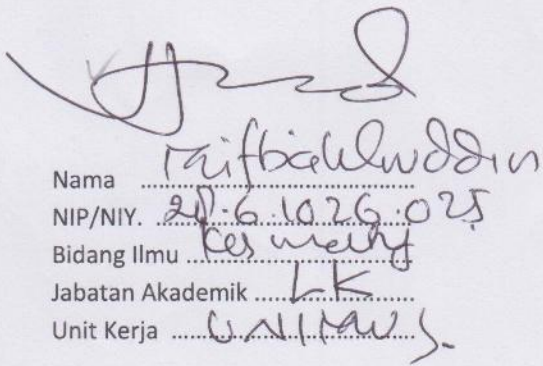 Nama Miftakhuddin
NIP/NIY. 28.6.1026.025
Bidang Ilmu Kesmas
Jabatan Akademik LK
Unit Kerja UNIMUS.